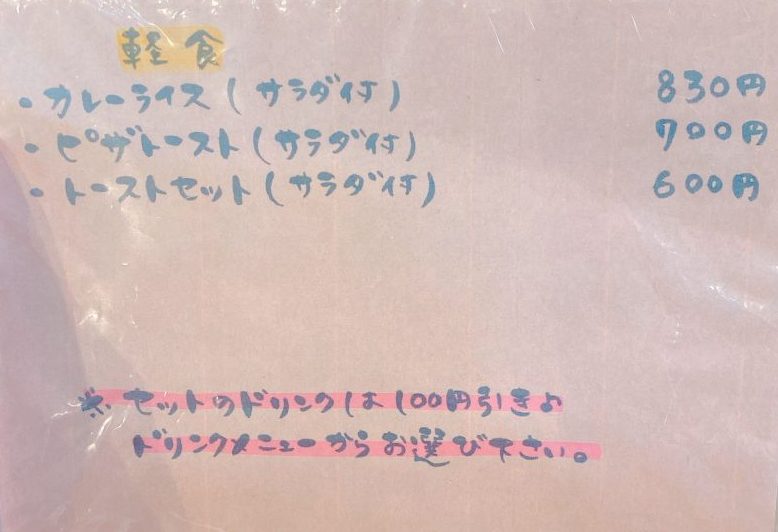 軽食
・カレーライス(サラダ付) 830円
・ピザトースト(サラダ付) 700円
・トーストセット(サラダ付) 600円
※セットのドリンクは100円引き♪
ドリンクメニューからお選び下さい。